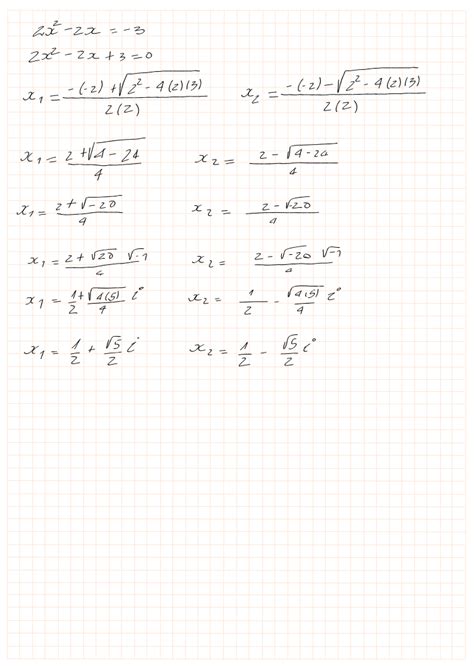 2x² - 2x = -3
2x² - 2x + 3 = 0
x₁ = (-(-2) + √(2² - 4(2)(3))) / 2(2)    x₂ = (-(-2) - √(2² - 4(2)(3))) / 2(2)
x₁ = (2 + √(4 - 24)) / 4    x₂ = (2 - √(4 - 24)) / 4
x₁ = (2 + √-20) / 4    x₂ = (2 - √-20) / 4
x₁ = (2 + √20 √-1) / 4    x₂ = (2 - √-20 √-1) / 4
x₁ = 1/2 + √(4(5))/4 i    x₂ = 1/2 - √(4(5))/4 i
x₁ = 1/2 + √5/2 i    x₂ = 1/2 - √5/2 i